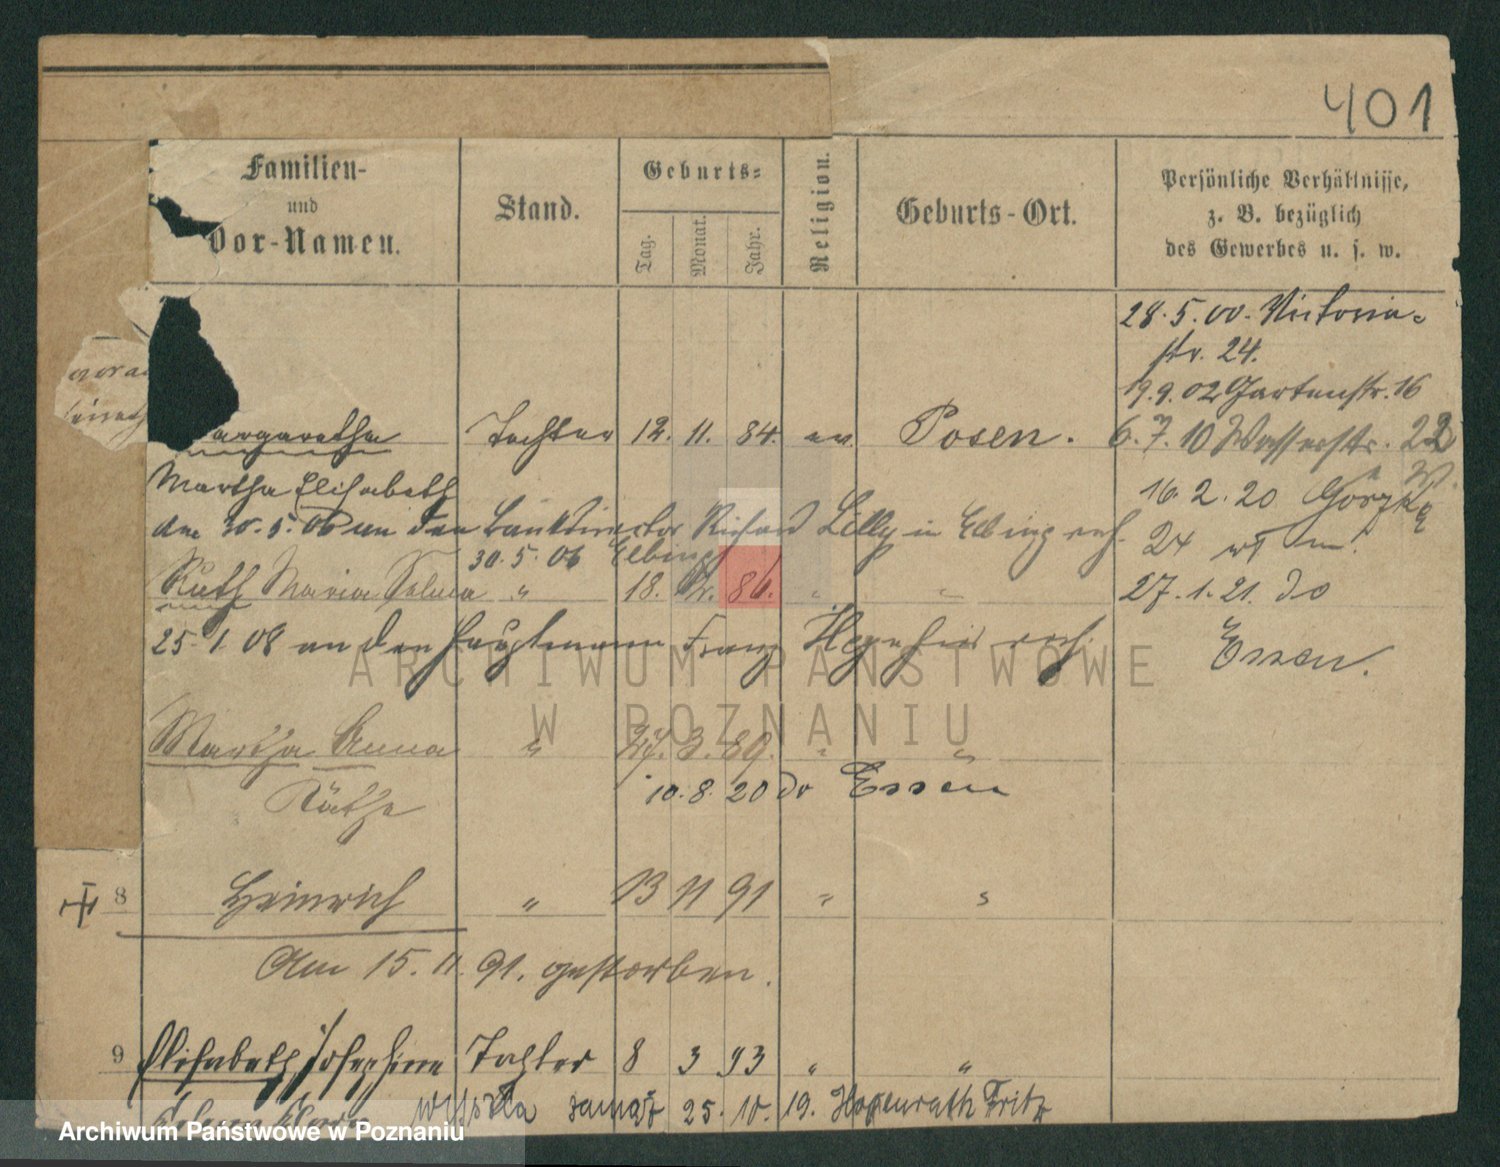 401
Familien-
und
Vor-Namen.
Stand.
Geburts-
Tag.
Monat.
Jahr.
Religion.
Geburts-Ort.
Persönliche Verhältnisse,
z. B. bezüglich
des Gewerbes u. s. w.
28.5.00. Victoria-
str. 24.
19.9.02 Gartenstr. 16
argarethe Tochter 12. 11. 84. ev. Posen. 6.7.10 Wasserstr. 22
Martha Elisabeth
16.2.20 Gorzka
am 30.5.06 an den Bankdirector Richard Lilly in Elbing verh.
24
30.5.06 Elbing
Ruth Maria Selma " 18. 86. " "
27.1.21. do
25.1.08 an den Hauptmann Franz verh.
Essen.
Martha Anna " 27. 3. 89. " "
Käthe
10.8.20 do Essen
8 Heinrich " 13 11 91 " "
Am 15.11.91. gestorben.
9 Elisabeth Josephine Tochter 8 3 93 " "
wyszła zamąż 25. 10. 19. Hopenrath Fritz
ARCHIWUM PAŃSTWOWE
W POZNANIU
Archiwum Państwowe w Poznaniu